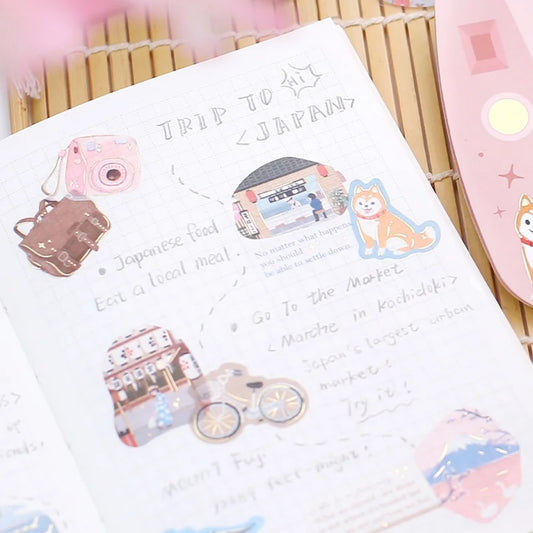 TRIP TO
Hi
<JAPAN>
• Japanese food
Eat a local meal.
No matter what happens
you should
be able to settle down.
• Go To the Market
<Marche in Kachidoki>
Japan's largest urban
market!
Try it!
Mount Fuji
must-feet-might!
of